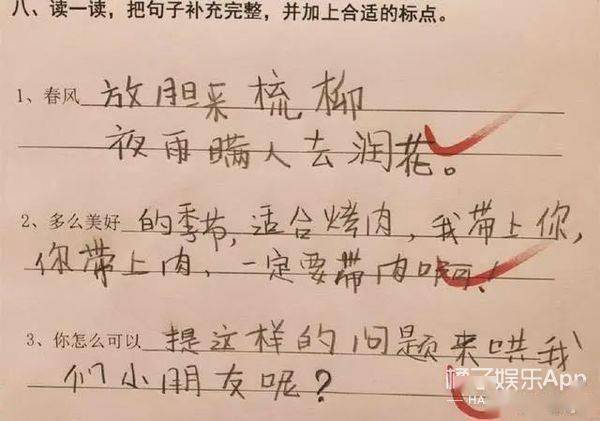 八、读一读，把句子补充完整，并加上合适的标点。
1、春风放胆来梳柳
夜雨瞒人去润花。
2、多么美好的季节，适合烤肉，我带上你，
你带上肉，一定要带肉啊！
3、你怎么可以提这样的问题来哄我
们小朋友呢？
橘子娱乐App